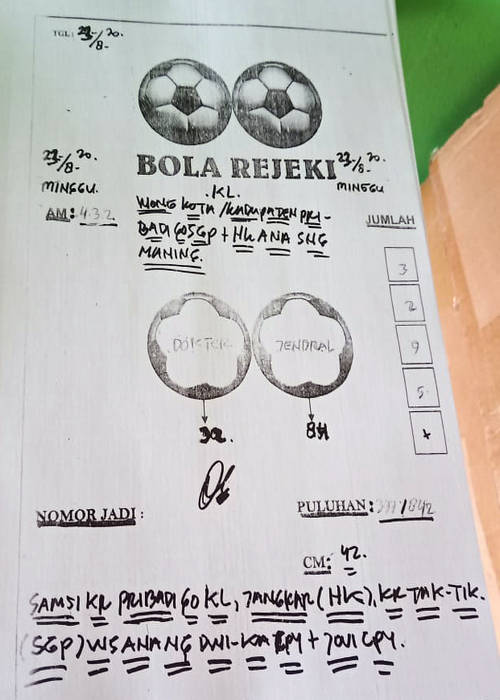 TGL: 23/8-20.
23/8-20.
MINGGU.
BOLA REJEKI
23/8-20.
MINGGU
.KL.
AM: 4.3.2
WONG KOTA /KABUPATEN PRI-
BADI GO SGP + HK ANA SNG
MANING.
JUMLAH
3
2
9
5
DOKTER
JENDRAL
32.
84
NOMOR JADI :
PULUHAN: 397/842
CM: 42.
SAMSI KR PRIBADI GO KL, JANGKAR (HK), KR TAK-TIK.
(SGP) WS ANANG DWI-KA CPY + JOVI CPY.